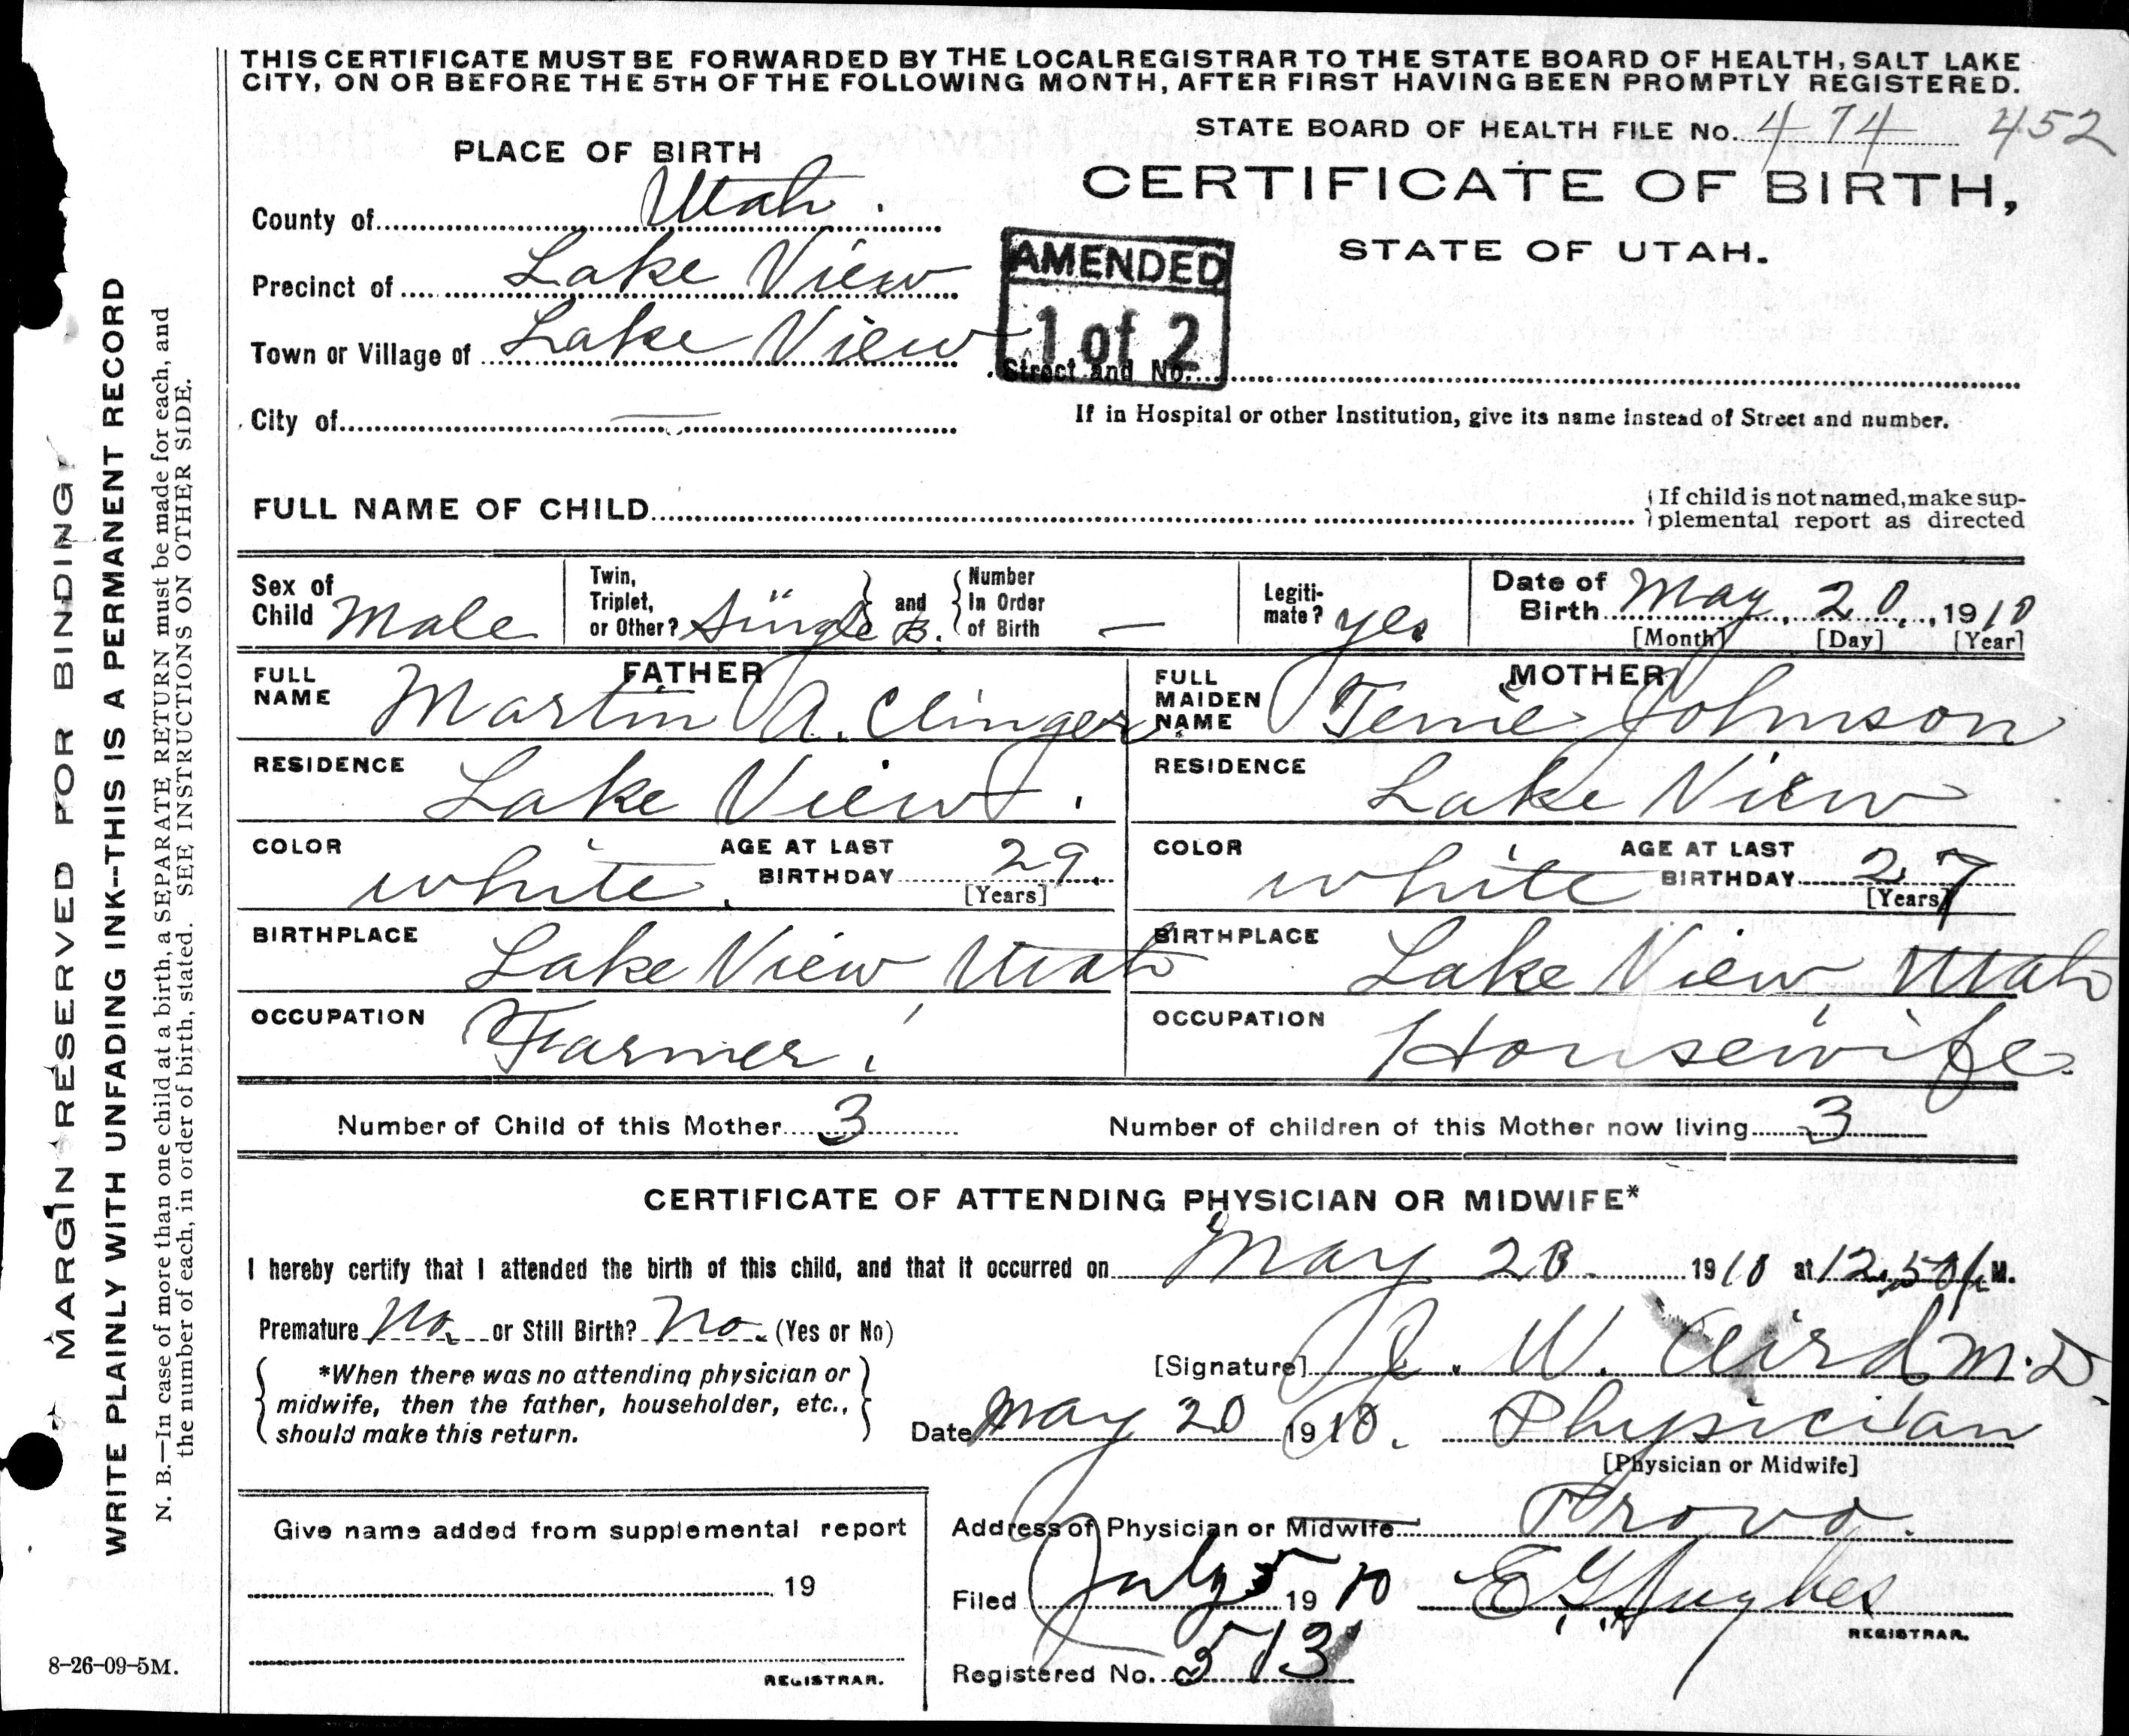 THIS CERTIFICATE MUST BE FORWARDED BY THE LOCAL REGISTRAR TO THE STATE BOARD OF HEALTH, SALT LAKE
CITY, ON OR BEFORE THE 5TH OF THE FOLLOWING MONTH, AFTER FIRST HAVING BEEN PROMPTLY REGISTERED.
STATE BOARD OF HEALTH FILE No. 474 452
PLACE OF BIRTH
CERTIFICATE OF BIRTH,
STATE OF UTAH.
County of Utah.
Precinct of Lake View
Town or Village of Lake View
AMENDED
1 of 2
Street and No.
City of —
If in Hospital or other Institution, give its name instead of Street and number.
FULL NAME OF CHILD
If child is not named, make sup-
plemental report as directed
Sex of Child Male
Twin, Triplet, or Other? Single and Number In Order of Birth —
Legiti-mate? yes
Date of Birth May 20, 1910
[Month] [Day] [Year]
FATHER
FULL NAME Martin A. Clinger
MOTHER
FULL MAIDEN NAME Tenie Johnson
RESIDENCE Lake View.
RESIDENCE Lake View
COLOR white. AGE AT LAST BIRTHDAY 29. [Years]
COLOR white AGE AT LAST BIRTHDAY 27 [Years]
BIRTHPLACE Lake View Utah
BIRTHPLACE Lake View, Utah
OCCUPATION Farmer.
OCCUPATION Housewife.
Number of Child of this Mother 3
Number of children of this Mother now living 3
CERTIFICATE OF ATTENDING PHYSICIAN OR MIDWIFE*
I hereby certify that I attended the birth of this child, and that it occurred on May 20 1910 at 12.50 M.
Premature No. or Still Birth? No. (Yes or No)
*When there was no attending physician or
midwife, then the father, householder, etc.,
should make this return.
[Signature] J. W. Aird M.D.
Date May 20 1910. Physician
[Physician or Midwife]
Give name added from supplemental report
19
REGISTRAR.
Address of Physician or Midwife Provo.
Filed July 5 1910 E G Hughes
REGISTRAR.
Registered No. 513
8-26-09-5M.
MARGIN RESERVED FOR BINDING
WRITE PLAINLY WITH UNFADING INK--THIS IS A PERMANENT RECORD
N. B.—In case of more than one child at a birth, a SEPARATE RETURN must be made for each, and
the number of each, in order of birth, stated. SEE INSTRUCTIONS ON OTHER SIDE.